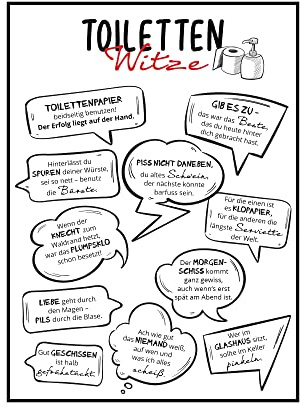 TOILETTEN
Witze
TOILETTENPAPIER
beidseitig benutzen!
Der Erfolg liegt auf der Hand.
GIB ES ZU -
das war das Beste,
das du heute hinter
dich gebracht hast.
Hinterlässt du
SPUREN deiner Würste,
sei so nett - benutz
die Bürste.
PISS NICHT DANEBEN,
du altes Schwein,
der nächste könnte
barfuss sein.
Für die einen ist
es KLOPAPIER,
für die anderen die
längste Serviette
der Welt.
Wenn der
KNECHT zum
Waldrand hetzt,
war das PLUMPSKLO
schon besetzt!
Der MORGEN-
SCHISS kommt
ganz gewiss,
auch wenn's erst
spät am Abend ist.
LIEBE geht durch
den Magen -
PILS durch die Blase.
Ach wie gut
das NIEMAND weiß,
auf wen und
was ich alles
scheiß.
Wer im
GLASHAUS sitzt,
sollte im Keller
pinkeln.
Gut GESCHISSEN
ist halb
gefrühstückt.